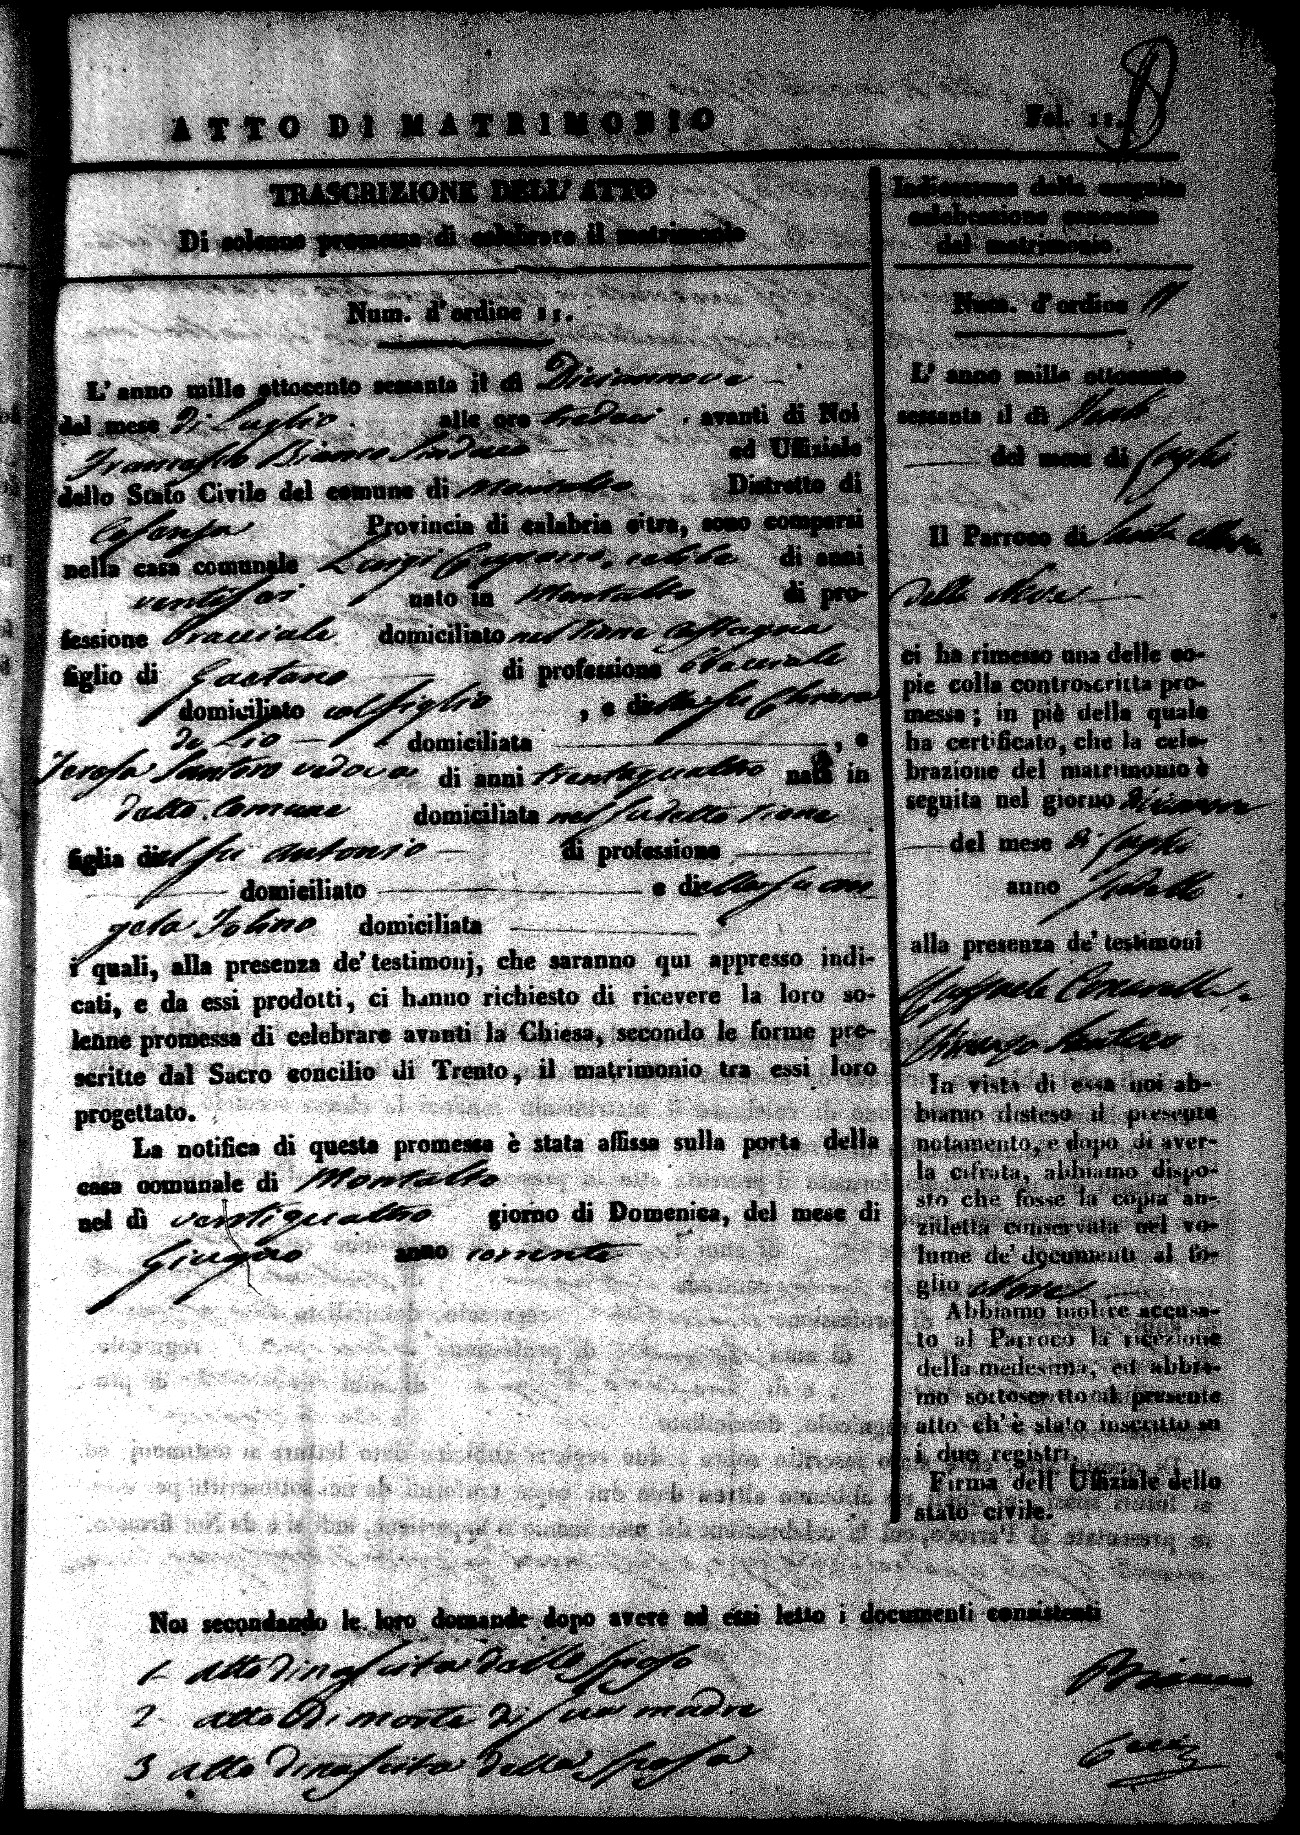 ATTO DI MATRIMONIO
Fol. 11.
TRASCRIZIONE DELL' ATTO
Di solenne promessa di celebrare il matrimonio
Num. d'ordine 11.
L'anno mille ottocento sessanta il dì Diciannove
del mese di Luglio alle ore tredici avanti di Noi
Francesco Bianco Sindaco ed Uffiziale
dello Stato Civile del comune di Montalto Distretto di
Cosenza Provincia di calabria citra, sono comparsi
nella casa comunale Luigi celibe di anni
ventisei nato in Montalto di pro-
fessione bracciale domiciliato nel rione Castagna
figlio di Gaetano di professione bracciale
domiciliato col figlio , e della fu Chiara
de Lio domiciliata , e
Teresa Santoro vedova di anni trentaquattro nata in
detto Comune domiciliata nel sudetto rione
figlia del fu Antonio di professione
domiciliato e della fu An
gela Iolino domiciliata
i quali, alla presenza de' testimonj, che saranno qui appresso indi-
cati, e da essi prodotti, ci hanno richiesto di ricevere la loro so-
lenne promessa di celebrare avanti la Chiesa, secondo le forme pre-
scritte dal Sacro concilio di Trento, il matrimonio tra essi loro
progettato.
La notifica di questa promessa è stata affissa sulla porta della
casa comunale di Montalto
nel dì ventiquattro giorno di Domenica, del mese di
Giugno anno corrente
Indicazione della seguita
celebrazione canonica
del matrimonio.
Num. d'ordine 11
L'anno mille ottocento
sessanta il dì Venti
del mese di Luglio
Il Parroco di Santa Maria
della Neve
ci ha rimesso una delle co-
pie colla controscritta pro-
messa; in piè della quale
ha certificato, che la cele-
brazione del matrimonio è
seguita nel giorno diciannove
del mese di Luglio
anno sudetto
alla presenza de' testimoni
Raffaele
Vincenzo Santoro
In vista di essa noi ab-
biamo disteso il presente
notamento, e dopo di aver-
la cifrata, abbiamo dispo-
sto che fosse la copia an-
zidetta conservata nel vo-
lume de' documenti al fo-
glio Nove
Abbiamo inoltre accusa-
to al Parroco la ricezione
della medesima, ed abbia-
mo sottoscritto il presente
atto ch'è stato inscritto su
i due registri.
Firma dell' Uffiziale dello
stato civile.
Noi secondando le loro domande dopo avere ad essi letto i documenti consistenti
1 atto di nascita dello sposo
2 atto di morte di sua madre
3 atto di nascita della sposa
Bianco